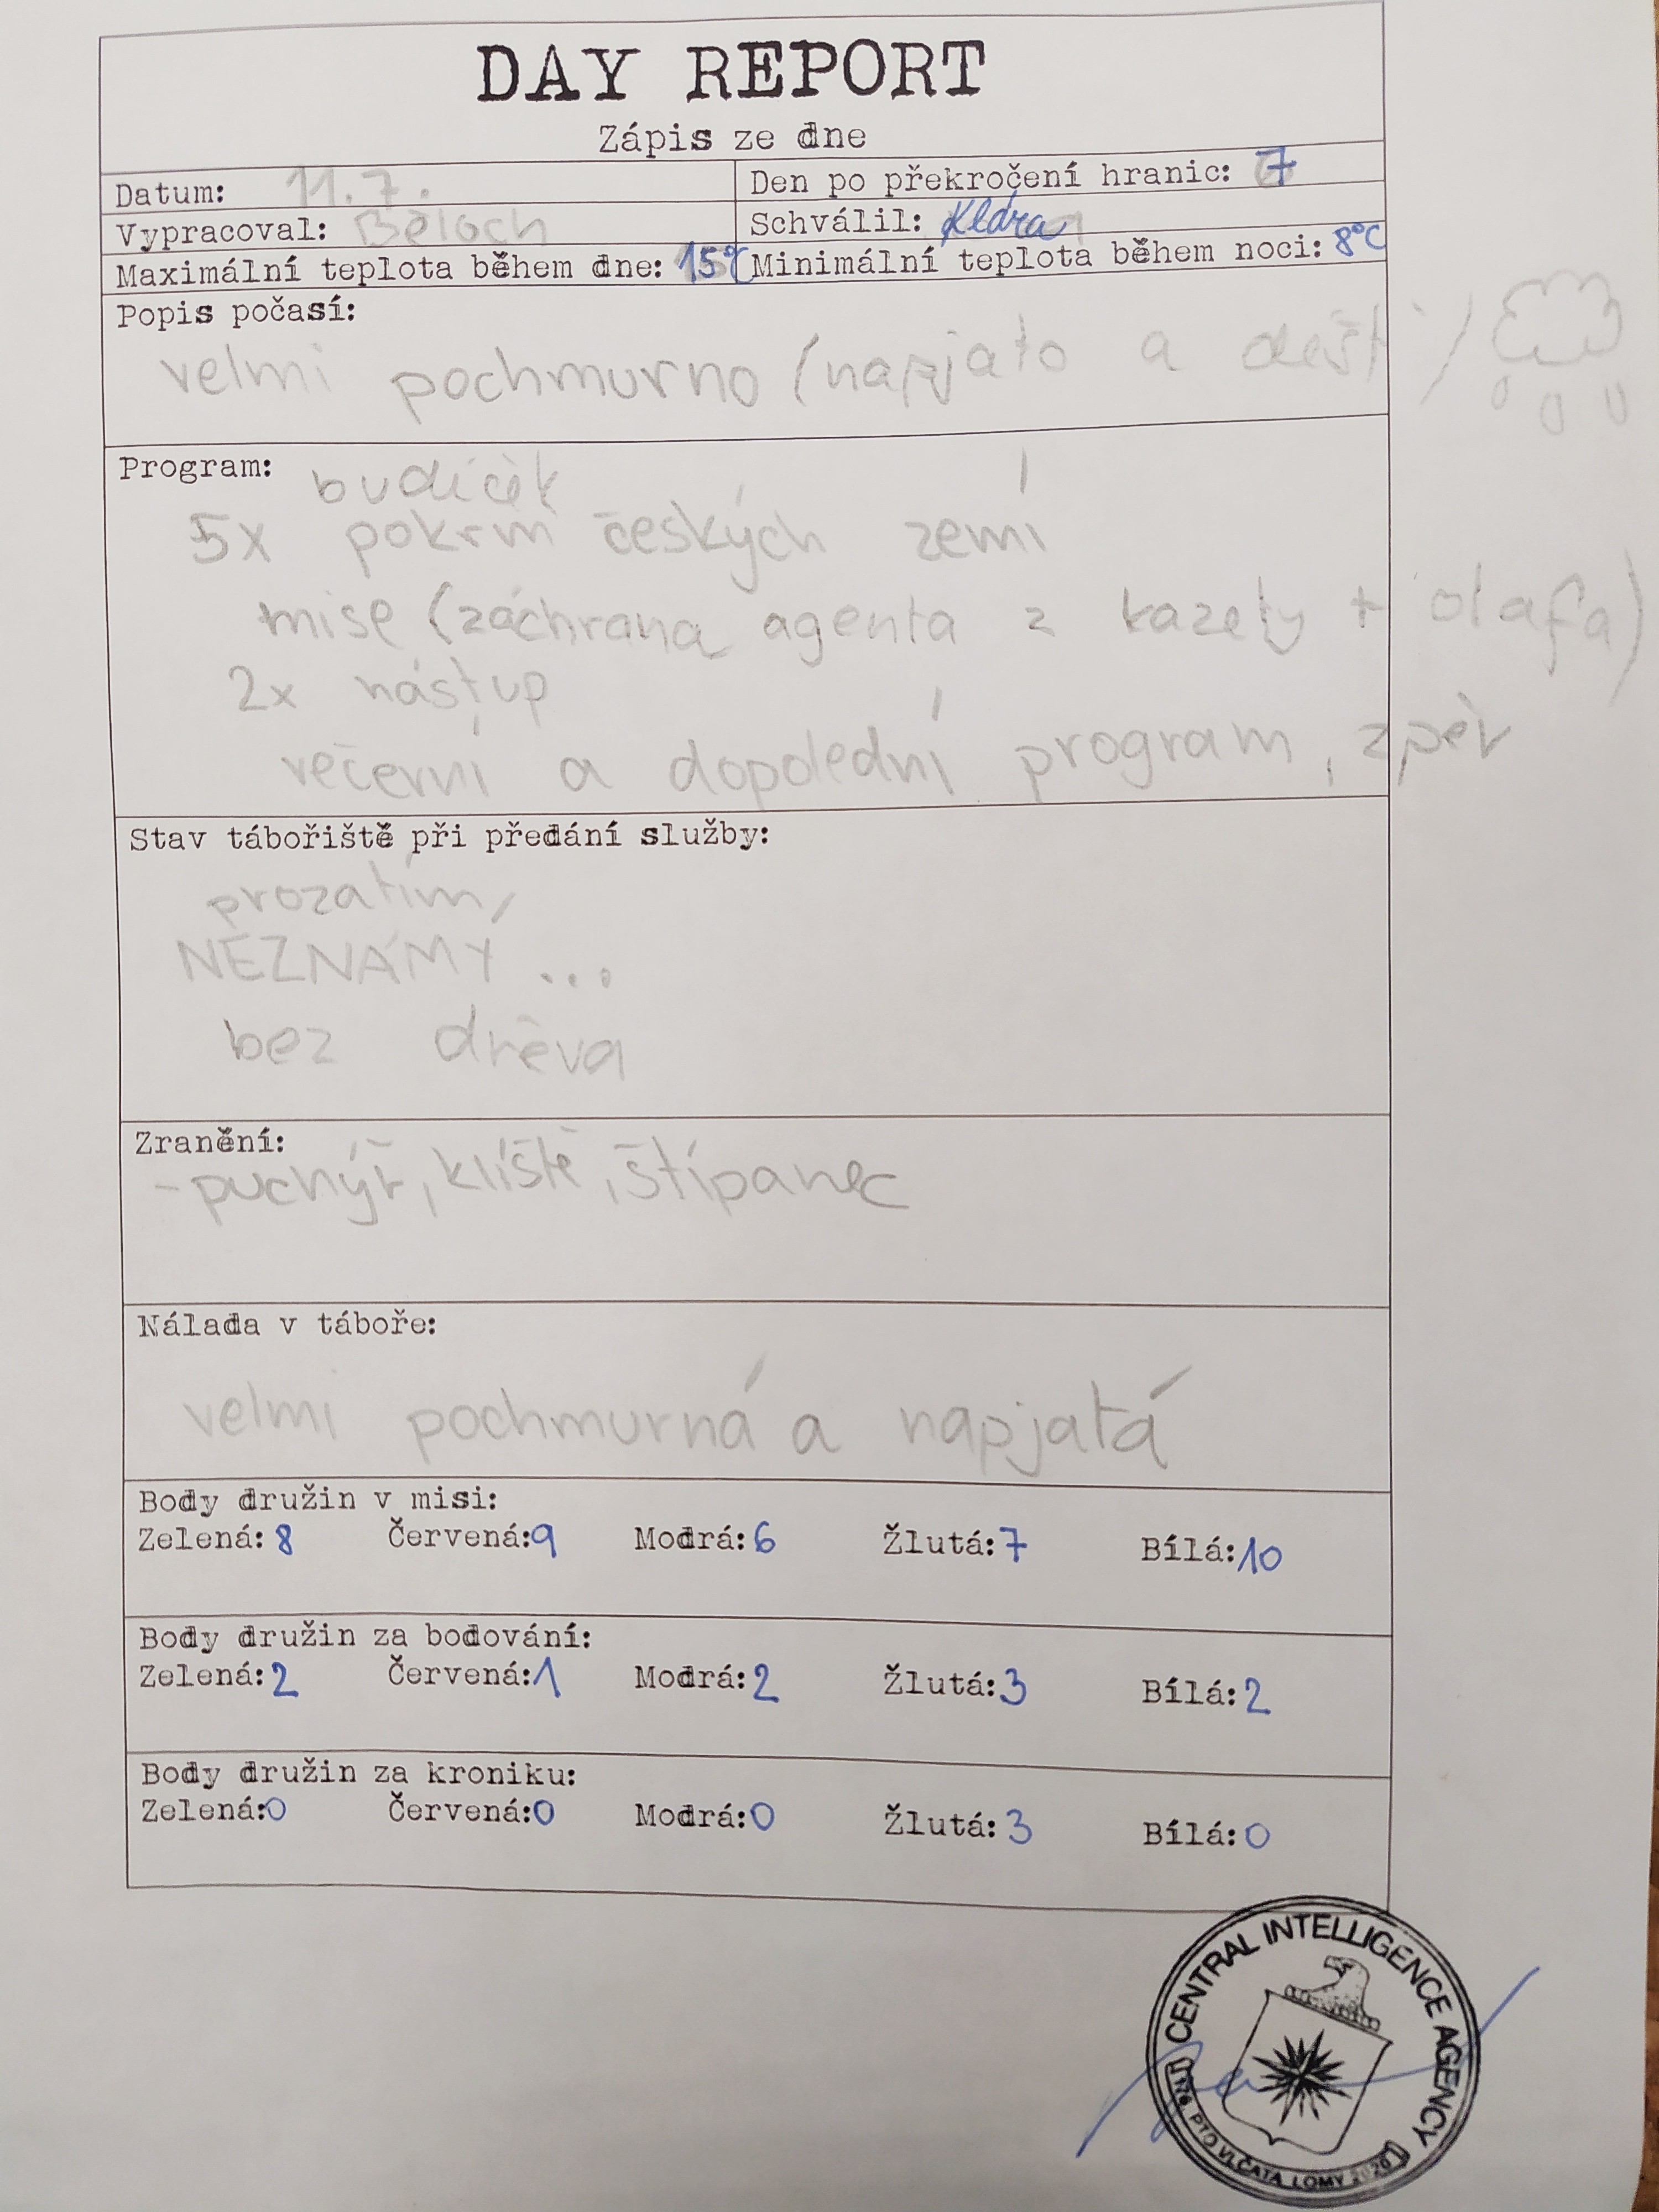 DAY REPORT
Zápis ze dne
Datum: 11.7.
Den po překročení hranic: 7
Vypracoval: Běloch
Schválil: Klára
Maximální teplota během dne: 15°C
Minimální teplota během noci: 8°C
Popis počasí:
velmi pochmurno (napjato a dešť)
Program: budíček
5x pokrm českých zemí
mise (záchrana agenta z kazety + olafa)
2x nástup
večerní a dopolední program, zpěv
Stav tábořiště při předání služby:
prozatím
NEZNÁMÝ...
bez dřeva
Zranění:
- puchýř, klíště, štípanec
Nálada v táboře:
velmi pochmurná a napjatá
Body družin v misi:
Zelená: 8 Červená: 9 Modrá: 6 Žlutá: 7 Bílá: 10
Body družin za bodování:
Zelená: 2 Červená: 1 Modrá: 2 Žlutá: 3 Bílá: 2
Body družin za kroniku:
Zelená: 0 Červená: 0 Modrá: 0 Žlutá: 3 Bílá: 0
CENTRAL INTELLIGENCE AGENCY
PTO VLČATA LOMY 2020